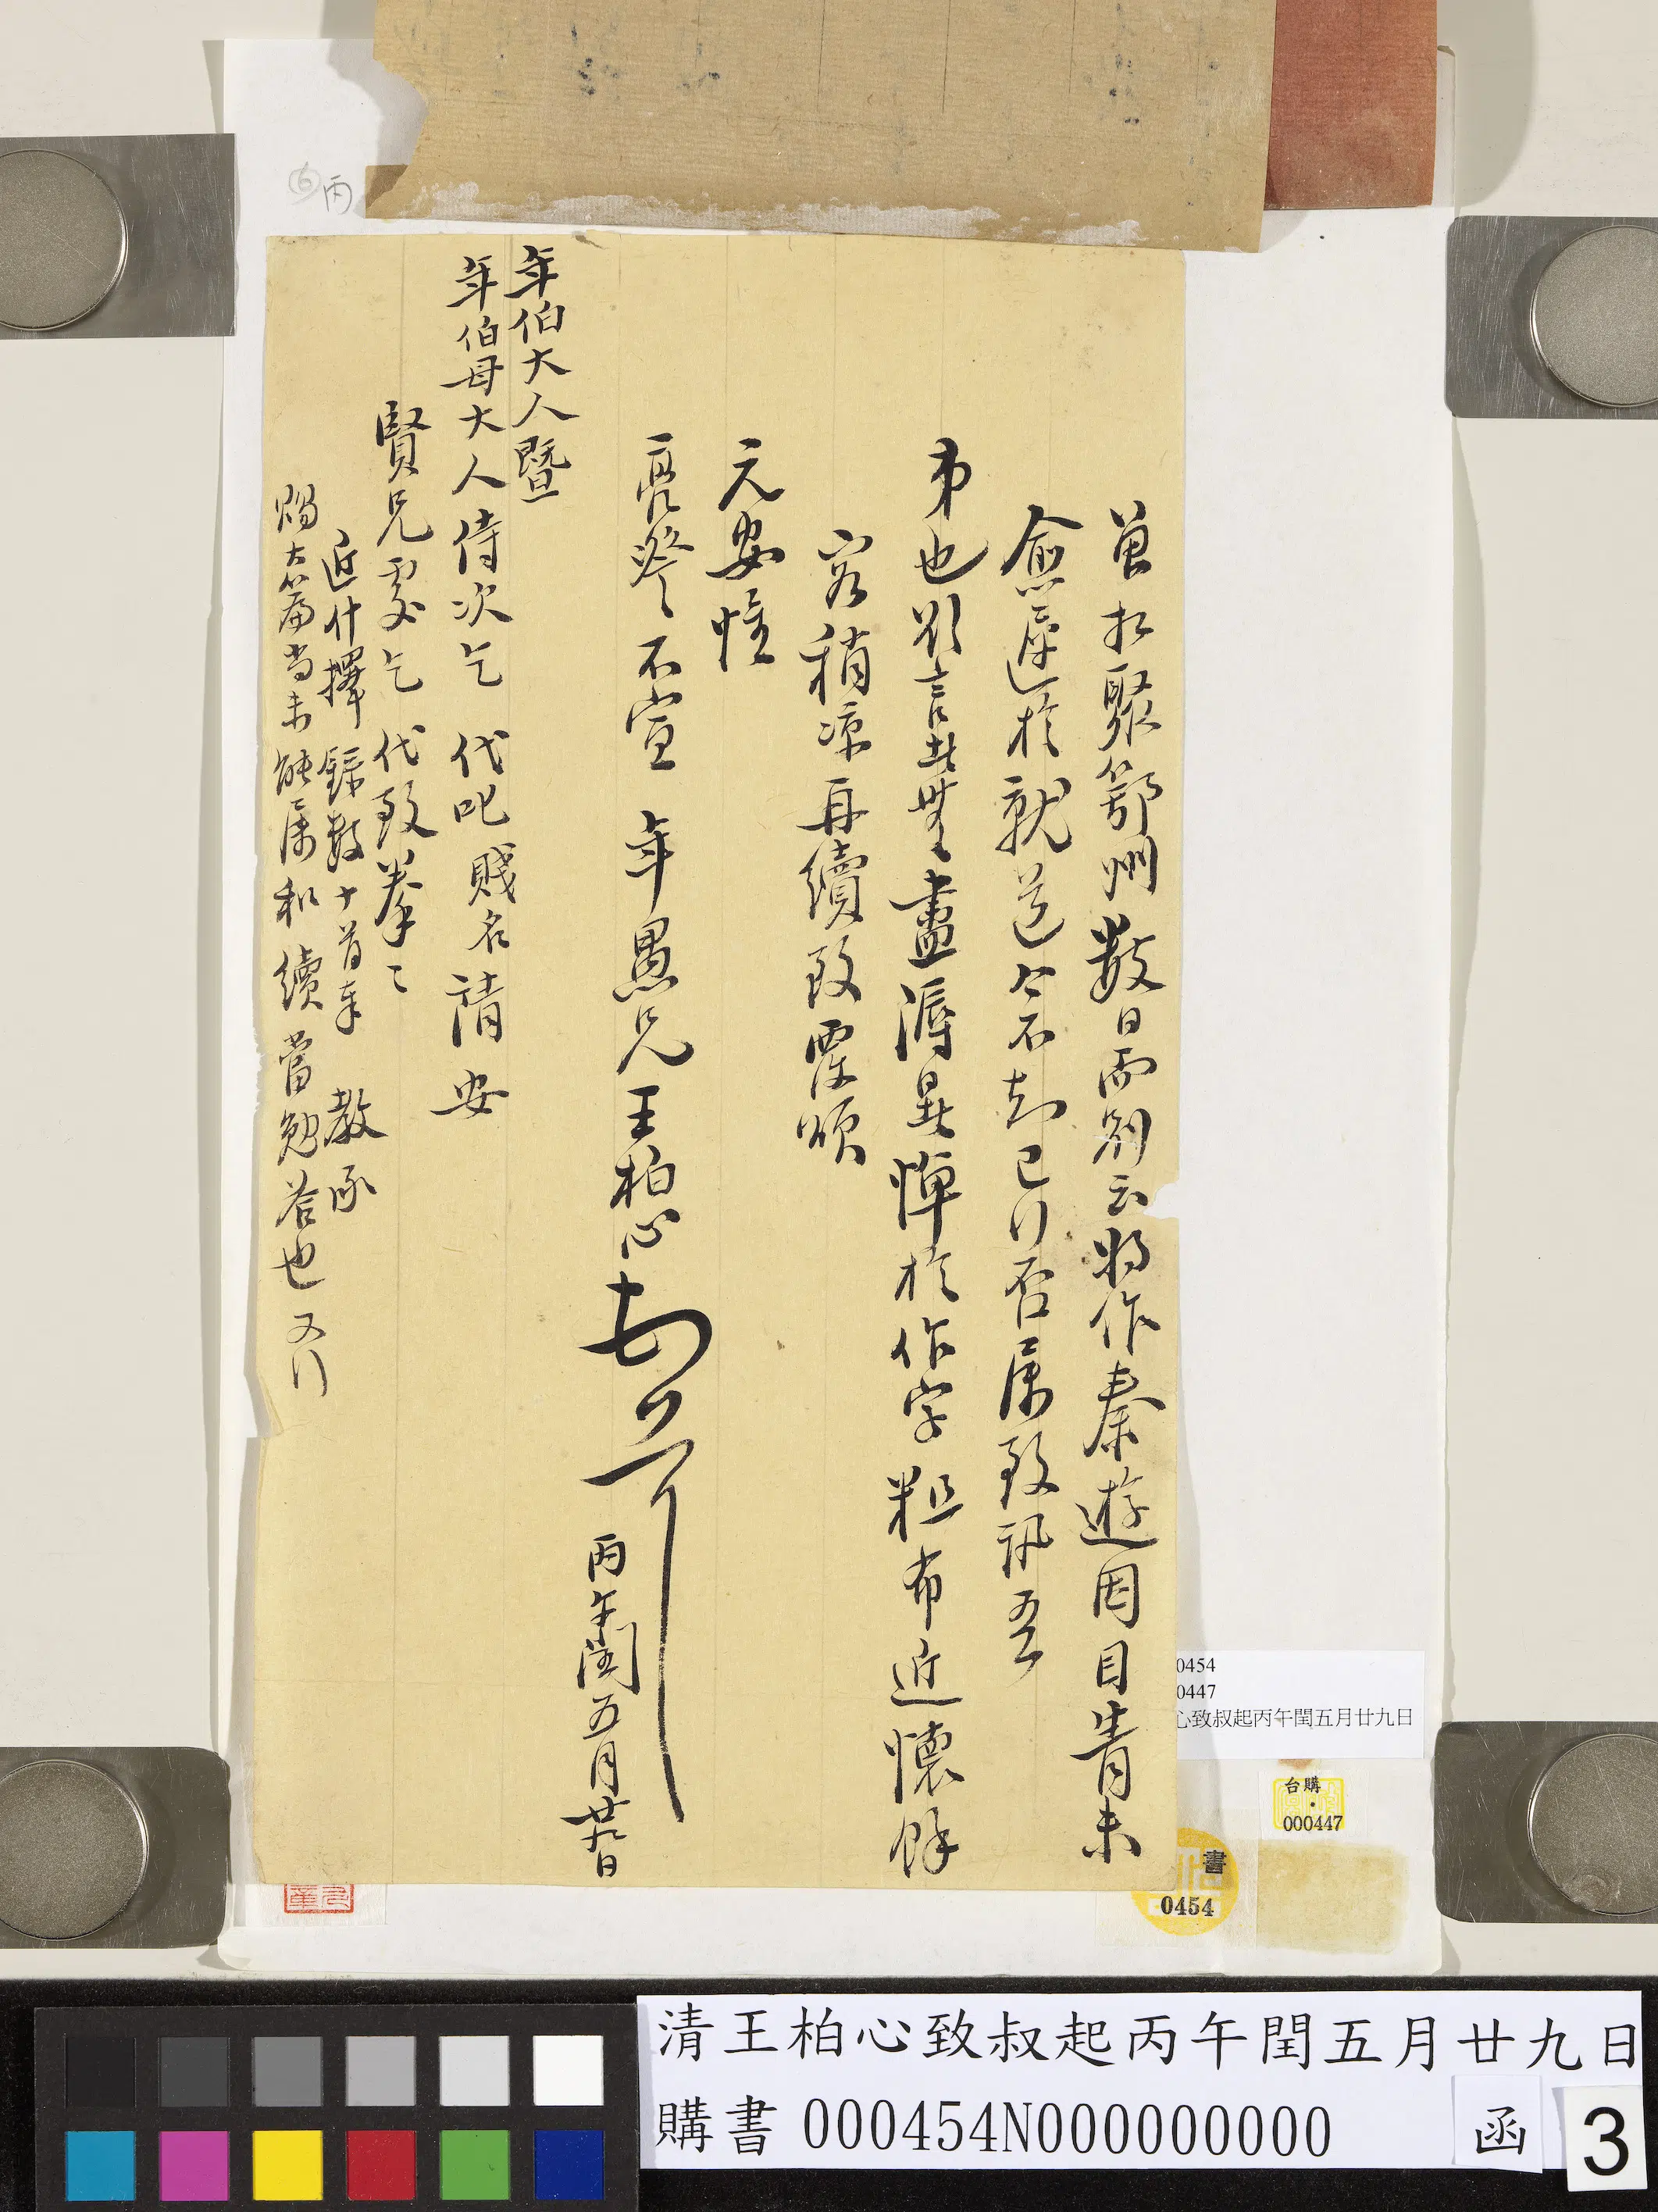 曾相聚鄂州數日而別云將作秦遊因目眚未
愈遲於就道今不知已行否屬致訊吾
弟也欲言無盡溽暑憚於作字粗布近懷餘
容稍涼再續致覆頌
元安惟
亮詧不宣 年愚兄王柏心頓首
丙午閏五月廿九日
年伯大人暨
年伯母大人侍次乞 代叱賤名請安
賢兄處乞代致拳々
近什擇錄數十首奉 教承
賜大篇尚未能屬和續當勉答也又行
⑥丙
0454
0447
心致叔起丙午閏五月廿九日
台購
000447
書
0454
清王柏心致叔起丙午閏五月廿九日
購書 000454N000000000 函 3